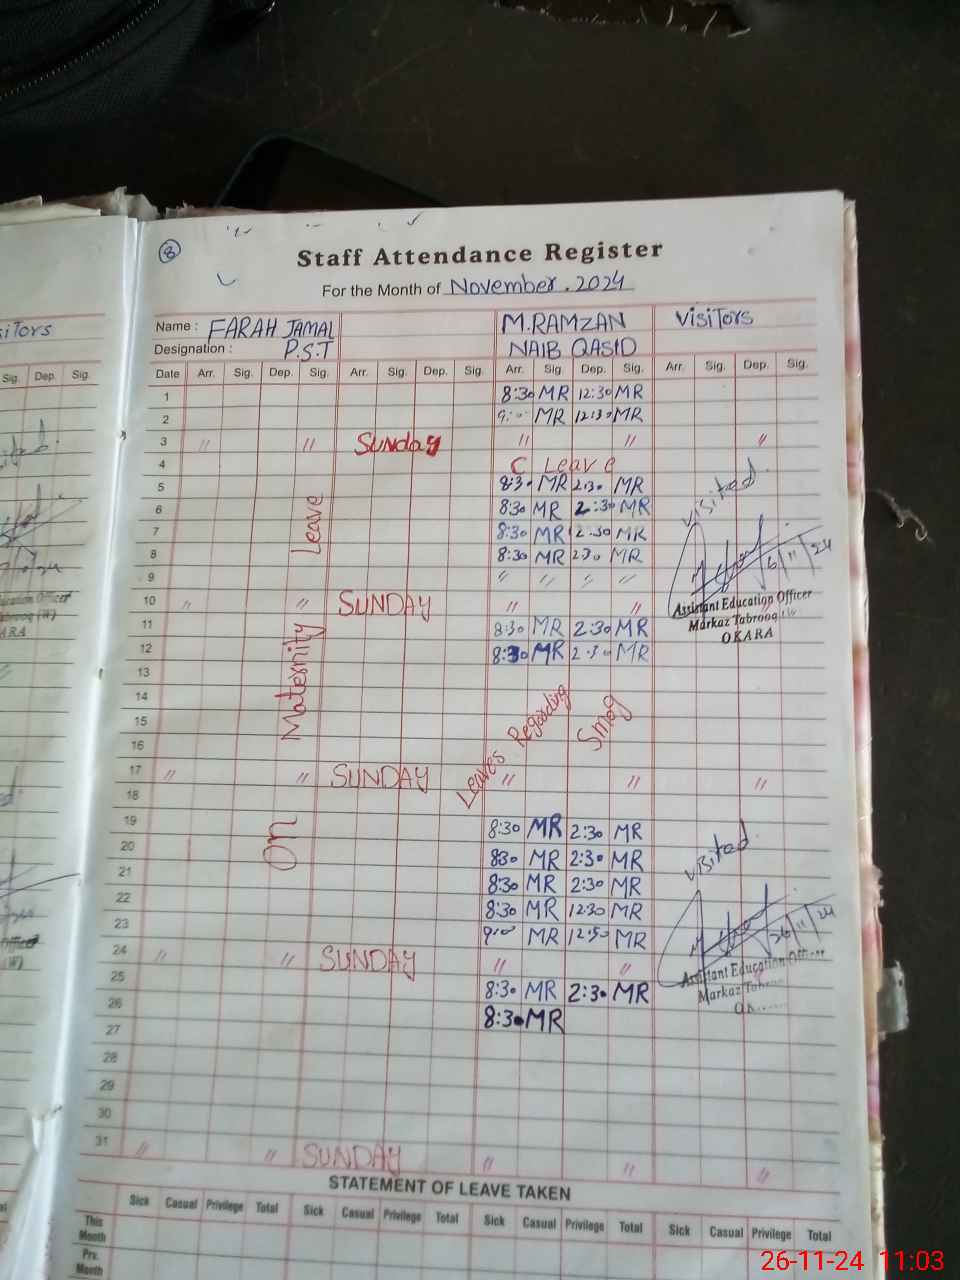 8
Staff Attendance Register
For the Month of November. 2024
sitors
Name : FARAH JAMAL M.RAMZAN Visitors
Designation : P.S.T NAIB QASID
Sig. Dep. Sig.
Date Arr. Sig. Dep. Sig. Arr. Sig. Dep. Sig. Arr. Sig. Dep. Sig. Arr. Sig. Dep. Sig.
1 8:30 MR 12:30 MR
2 9:00 MR 12:30 MR
3 " " Sunday " " "
4 C Leave
5 8:30 MR 2:30 MR
6 8:30 MR 2:30 MR
7 8:30 MR 2:30 MR
8 8:30 MR 2:30 MR
9 " " " "
10 " " SUNDAY " "
11 8:30 MR 2:30 MR
12 8:30 MR 2:30 MR
13
14
15
16
17 " " SUNDAY " " "
18
19 8:30 MR 2:30 MR
20 830 MR 2:30 MR
21 8:30 MR 2:30 MR
22 8:30 MR 12:30 MR
23 9:00 MR 12:30 MR
24 " " SUNDAY " "
25 8:30 MR 2:30 MR
26 8:30 MR
27
28
29
30
31 " " SUNDAY " " "
On Maternity Leave
Leaves Regarding Smog
visited
6/11/24
Assistant Education Officer
Markaz Tabrooq (W)
OKARA
visited
26/11/24
Assistant Education Officer
Markaz
STATEMENT OF LEAVE TAKEN
Sick Casual Privilege Total Sick Casual Privilege Total Sick Casual Privilege Total Sick Casual Privilege Total
This Month
Prv. Month
26-11-24 11:03